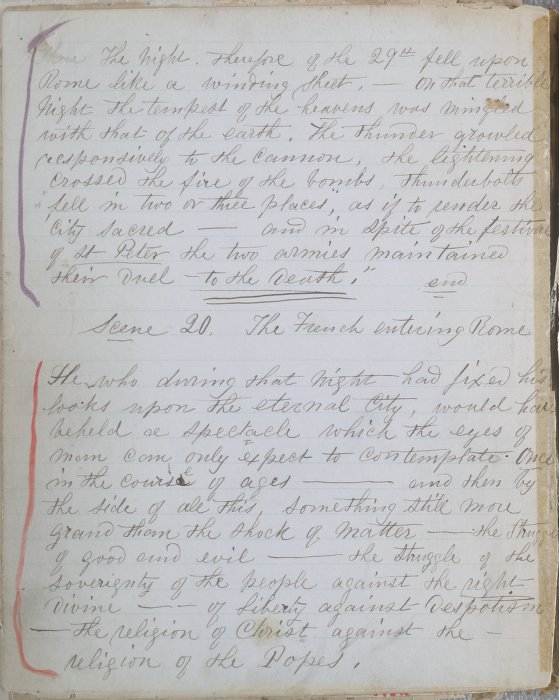 The Night. Therefore of the 29th fell upon
Rome like a winding sheet. — On that terrible
Night the tempest of the heavens was mingled
with that of the earth. The thunder growled
responsively to the Cannon, the lightening
crossed the fire of the bombs, thunderbolts
"fell in two or three places", as if to render the
City sacred — and in spite of the festival
of St Peter the two armies maintained
their Duel — to the Death." end
Scene 20. The French entering Rome
He who during that Night had fixed his
looks upon the eternal City, would have
beheld a spectacle which the eyes of
man can only expect to contemplate. Once
in the course of ages —— and then by
the side of all this, something still more
grand than the shock of matter — the Struggle
of good and evil —— the struggle of the
soverignty of the people against the right
Divine —— of Liberty against Despotism
— the religion of Christ against the —
religion of the Popes.